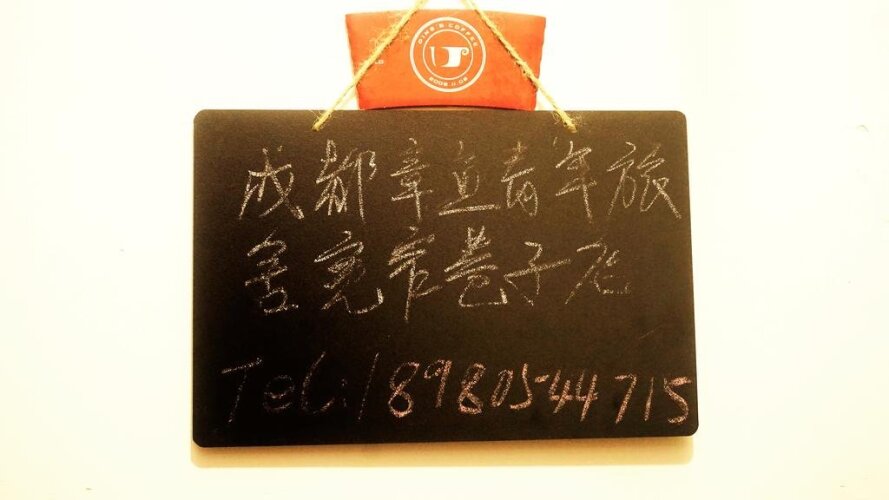 DIMS'S COFFEE
2009.11.09
成都章鱼青年旅
舍宽窄巷子店
Tel:18980544715